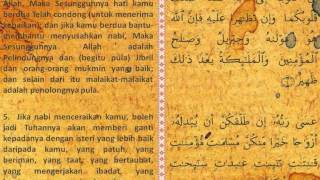 Allah, Maka Sesungguhnya hati kamu
berdua telah condong (untuk menerima
kebaikan); dan jika kamu berdua bantu-
membantu menyusahkan nabi, Maka
Sesungguhnya Allah adalah
Pelindungnya dan (begitu pula) Jibril
dan orang-orang mukmin yang baik;
dan selain dari itu malaikat-malaikat
adalah penolongnya pula.
5. Jika nabi menceraikan kamu, boleh
jadi Tuhannya akan memberi ganti
kepadanya dengan isteri yang lebih baik
daripada kamu, yang patuh, yang
beriman, yang taat, yang bertaubat,
yang mengerjakan ibadat, yang
قُلُوبُكُمَا وَإِن تَظَـٰهَرَا عَلَيْهِ فَإِنَّ ٱللَّهَ
هُوَ مَوْلَىٰهُ وَجِبْرِيلُ وَصَـٰلِحُ
ٱلْمُؤْمِنِينَ وَٱلْمَلَـٰٓئِكَةُ بَعْدَ ذَٰلِكَ
عَسَىٰ رَبُّهُۥٓ إِن طَلَّقَكُنَّ أَن يُبْدِلَهُۥٓ
أَزْوَٰجًا خَيْرًا مِّنكُنَّ مُسْلِمَـٰتٍ مُّؤْمِنَـٰتٍ
قَـٰنِتَـٰتٍ تَـٰٓئِبَـٰتٍ عَـٰبِدَٰتٍ سَـٰٓئِحَـٰتٍ